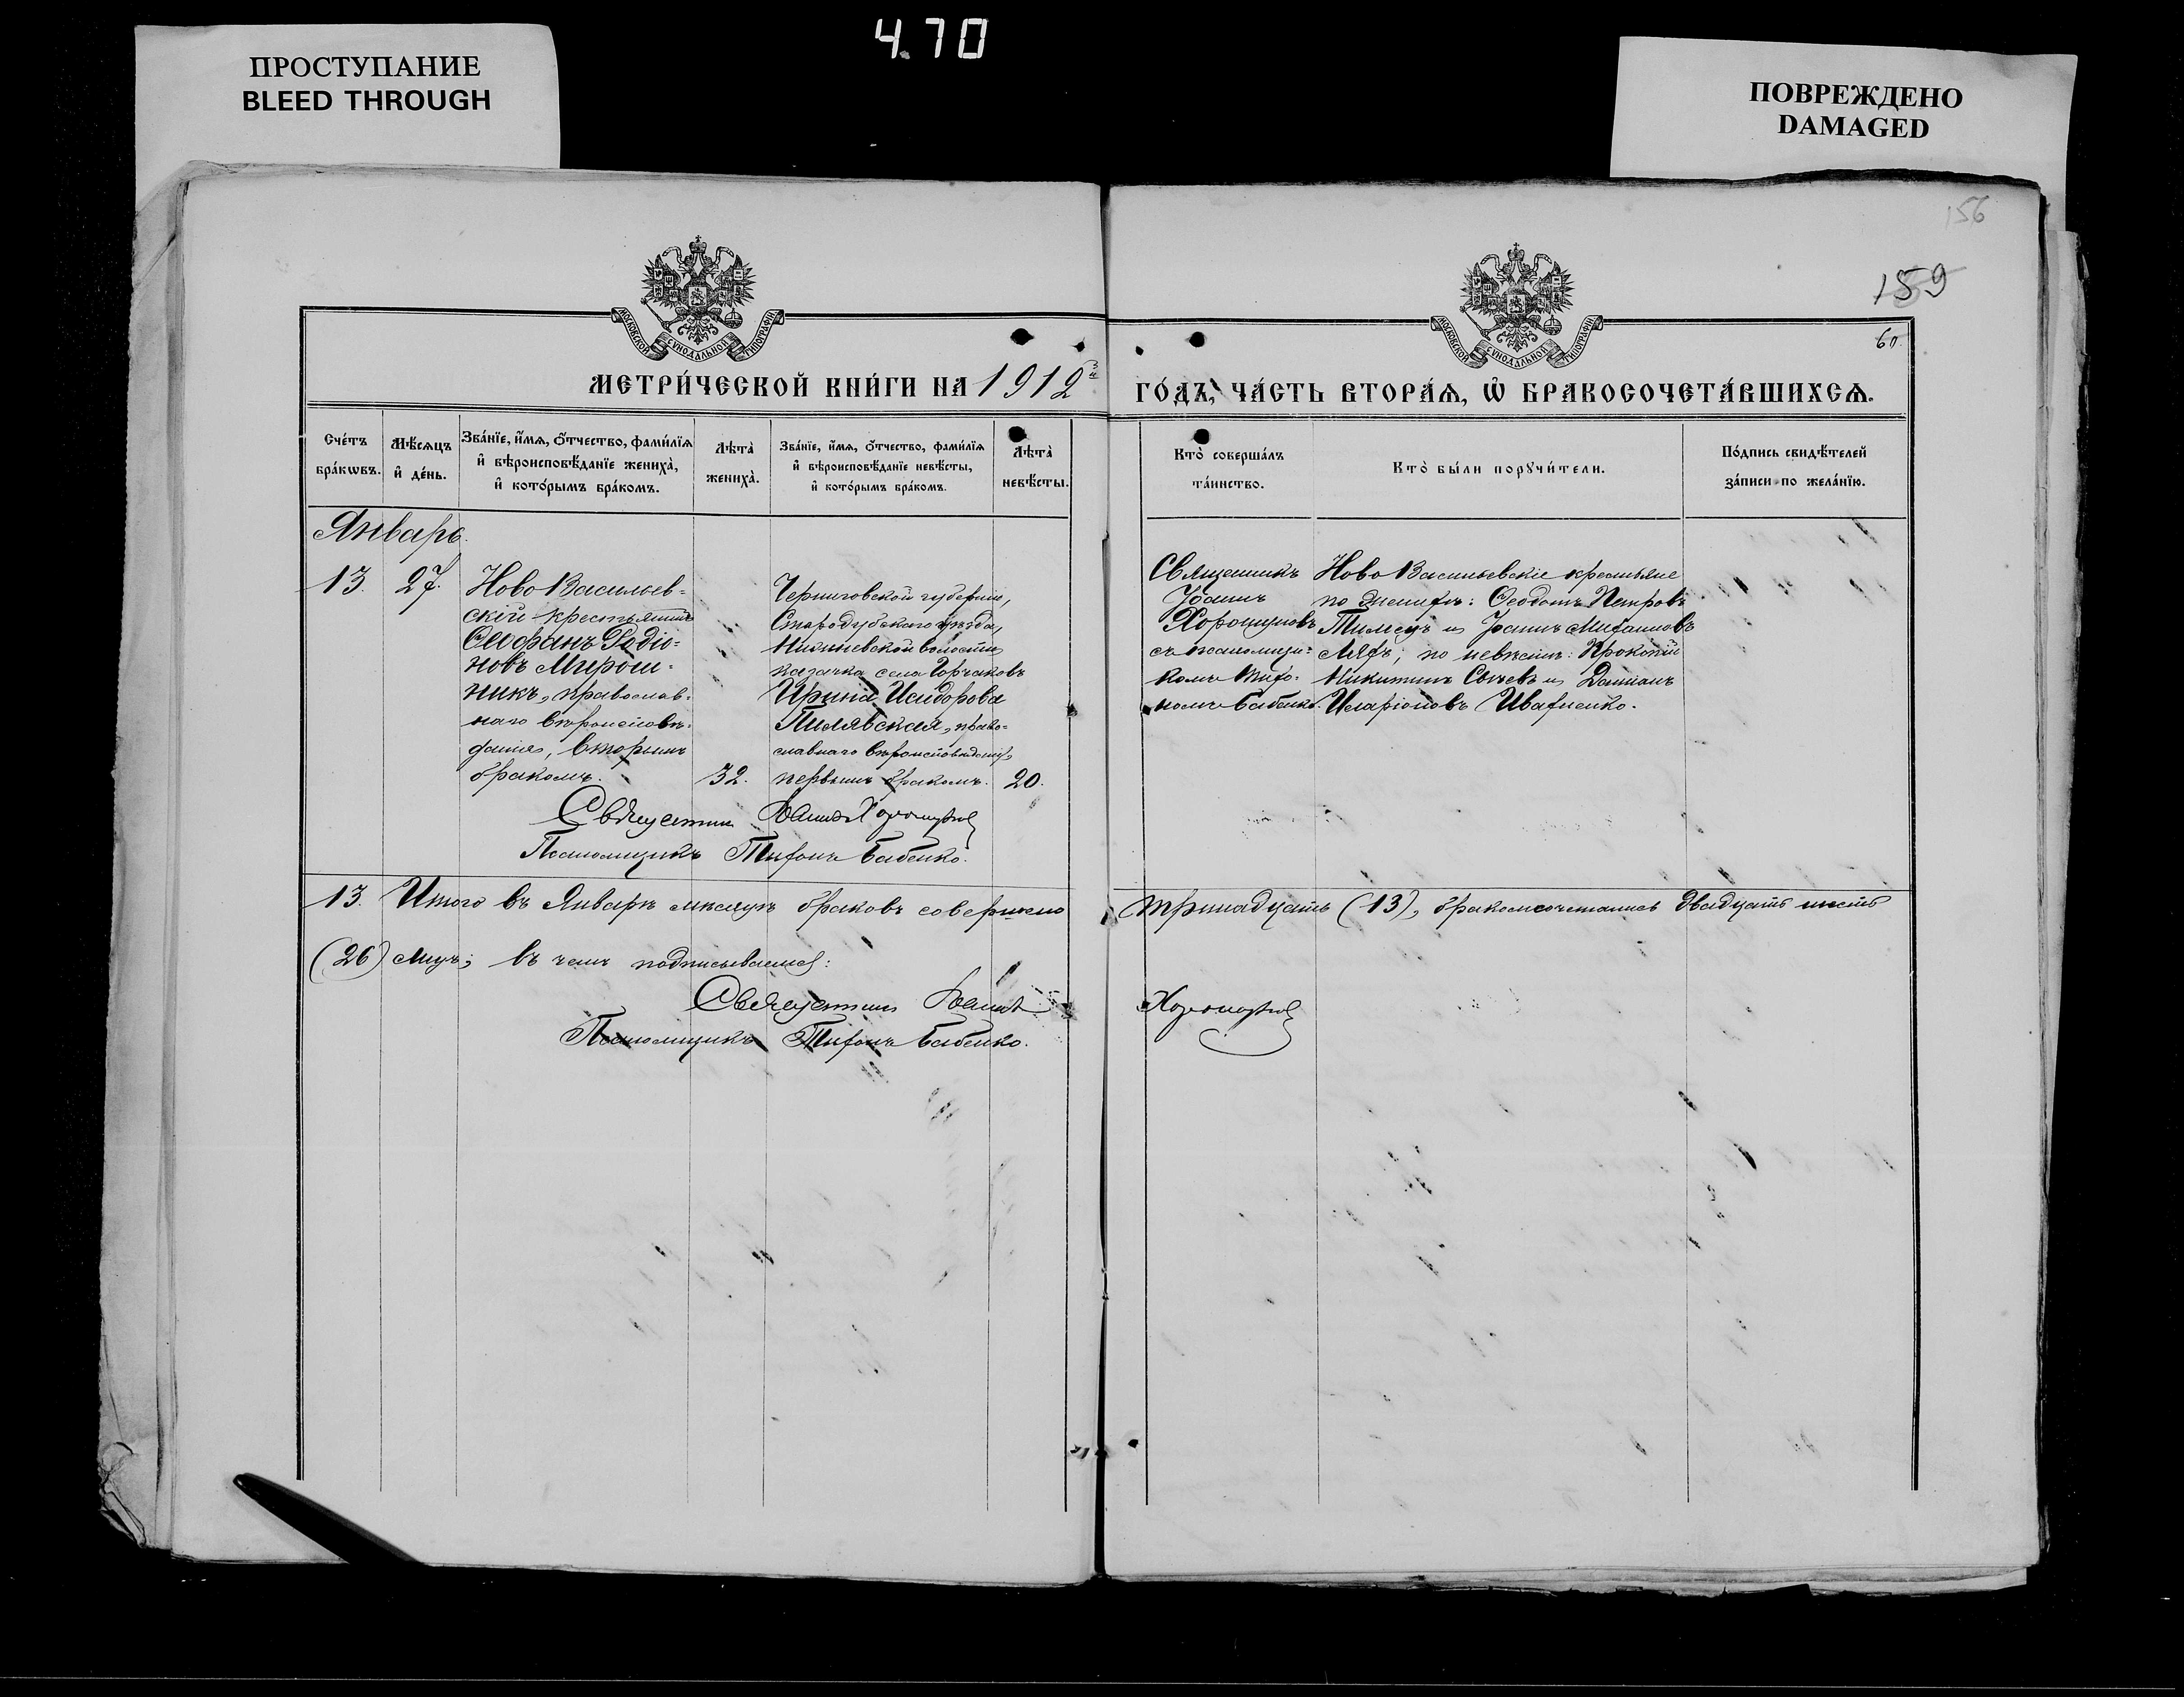 4.70
ПРОСТУПАНИЕ
BLEED THROUGH
ПОВРЕЖДЕНО
DAMAGED
156
159
60.
МОСКОВСКОЙ СѴНОДАЛЬНОЙ ТИПОГРАФІИ
МОСКОВСКОЙ СѴНОДАЛЬНОЙ ТИПОГРАФІИ
МЕТРИ́ЧЕСКОЙ КНИ́ГИ НА 1912й
ГО́ДЪ, ЧА́СТЬ ВТОРА́Ѧ, Ѽ БРАКОСОЧЕТА́ВШИХСѦ.
Сче́тъ бра́кѡвъ.
Мѣ́сѧцъ и҆ де́нь.
Зва́нїе, и҆́мѧ, ѻ҆́тчество, фами́лїѧ и҆ вѣроисповѣ́данїе жениха̀, и҆ кото́рымъ бра́комъ.
Лѣта̀ жениха̀.
Зва́нїе, и҆́мѧ, ѻ҆́тчество, фами́лїѧ и҆ вѣроисповѣ́данїе невѣ́сты, и҆ кото́рымъ бра́комъ.
Лѣта̀ невѣ́сты.
Кто̀ соверша́лъ та́инство.
Кто̀ бы́ли порꙋчи́тели.
По́дпись свидѣ́телей за́писи по жела́нїю.
Январь.
13. 27.
Ново Васильев-
скій крестьянинъ
Ѳеофанъ Родіо-
новъ Мирош-
никъ, православ-
наго вѣроисповѣ-
данія, вторымъ
бракомъ.
32.
Черниговской губерніи,
Стародубскаго уѣзда,
волости
казачка села Горчаковъ
Ирина Исидорова
Пилявская, право-
славнаго вѣроисповѣданія,
первымъ бракомъ.
20.
Священникъ
Іоаннъ
Хорошуновъ
съ псаломщи-
комъ Тихо-
номъ Бабенко.
Ново Васильевскіе крестьяне
по женихѣ: Ѳеодотъ Петровъ
и Іоаннъ Михаиловъ
по невѣстѣ: Прокопій
Никитинъ и Даміанъ
Иларіоновъ Ивахненко.
Священник Іоанн Хорошунов
Псаломщикъ Тихонъ Бабенко.
13. Итого въ Январѣ мѣсяцѣ браковъ совершено тринадцать (13), бракомсочетались двадцать шесть
(26) лицъ; въ чемъ подписываемся:
Священник Іоанн Хорошунов
Псаломщикъ Тихонъ Бабенко.